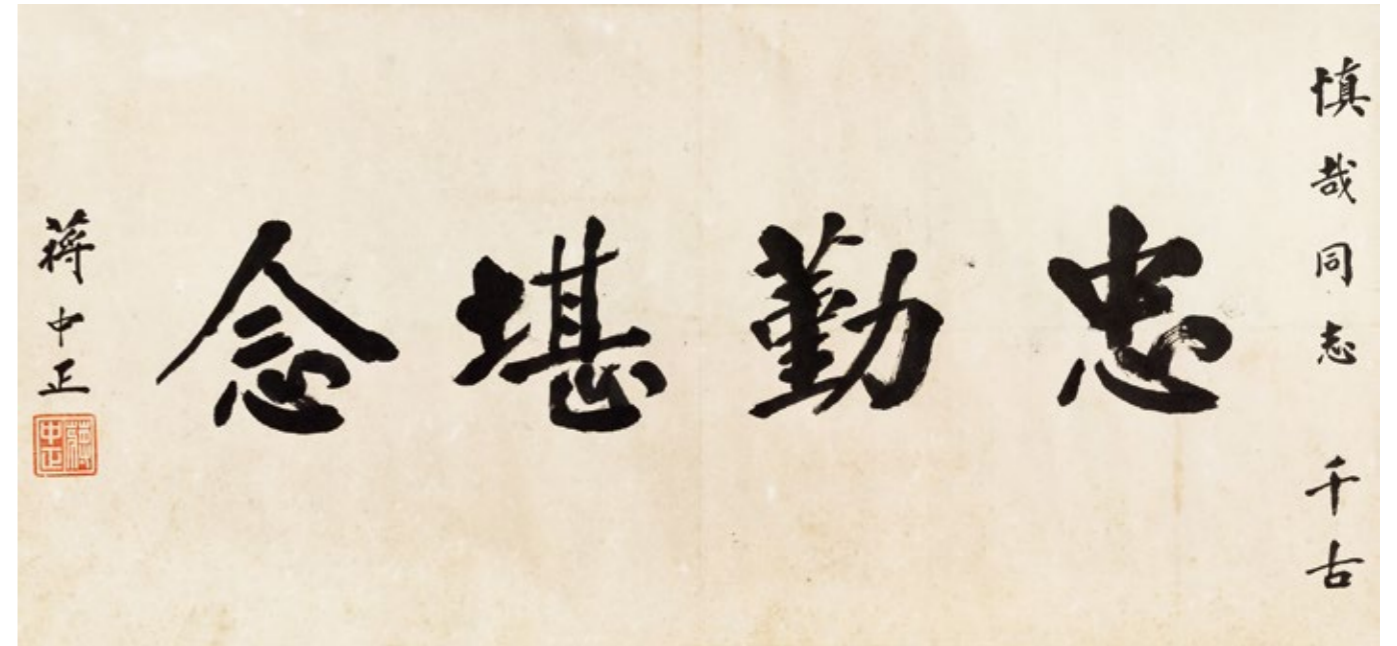 慎哉同志 千古
忠勤堪念
蔣中正
蔣中正